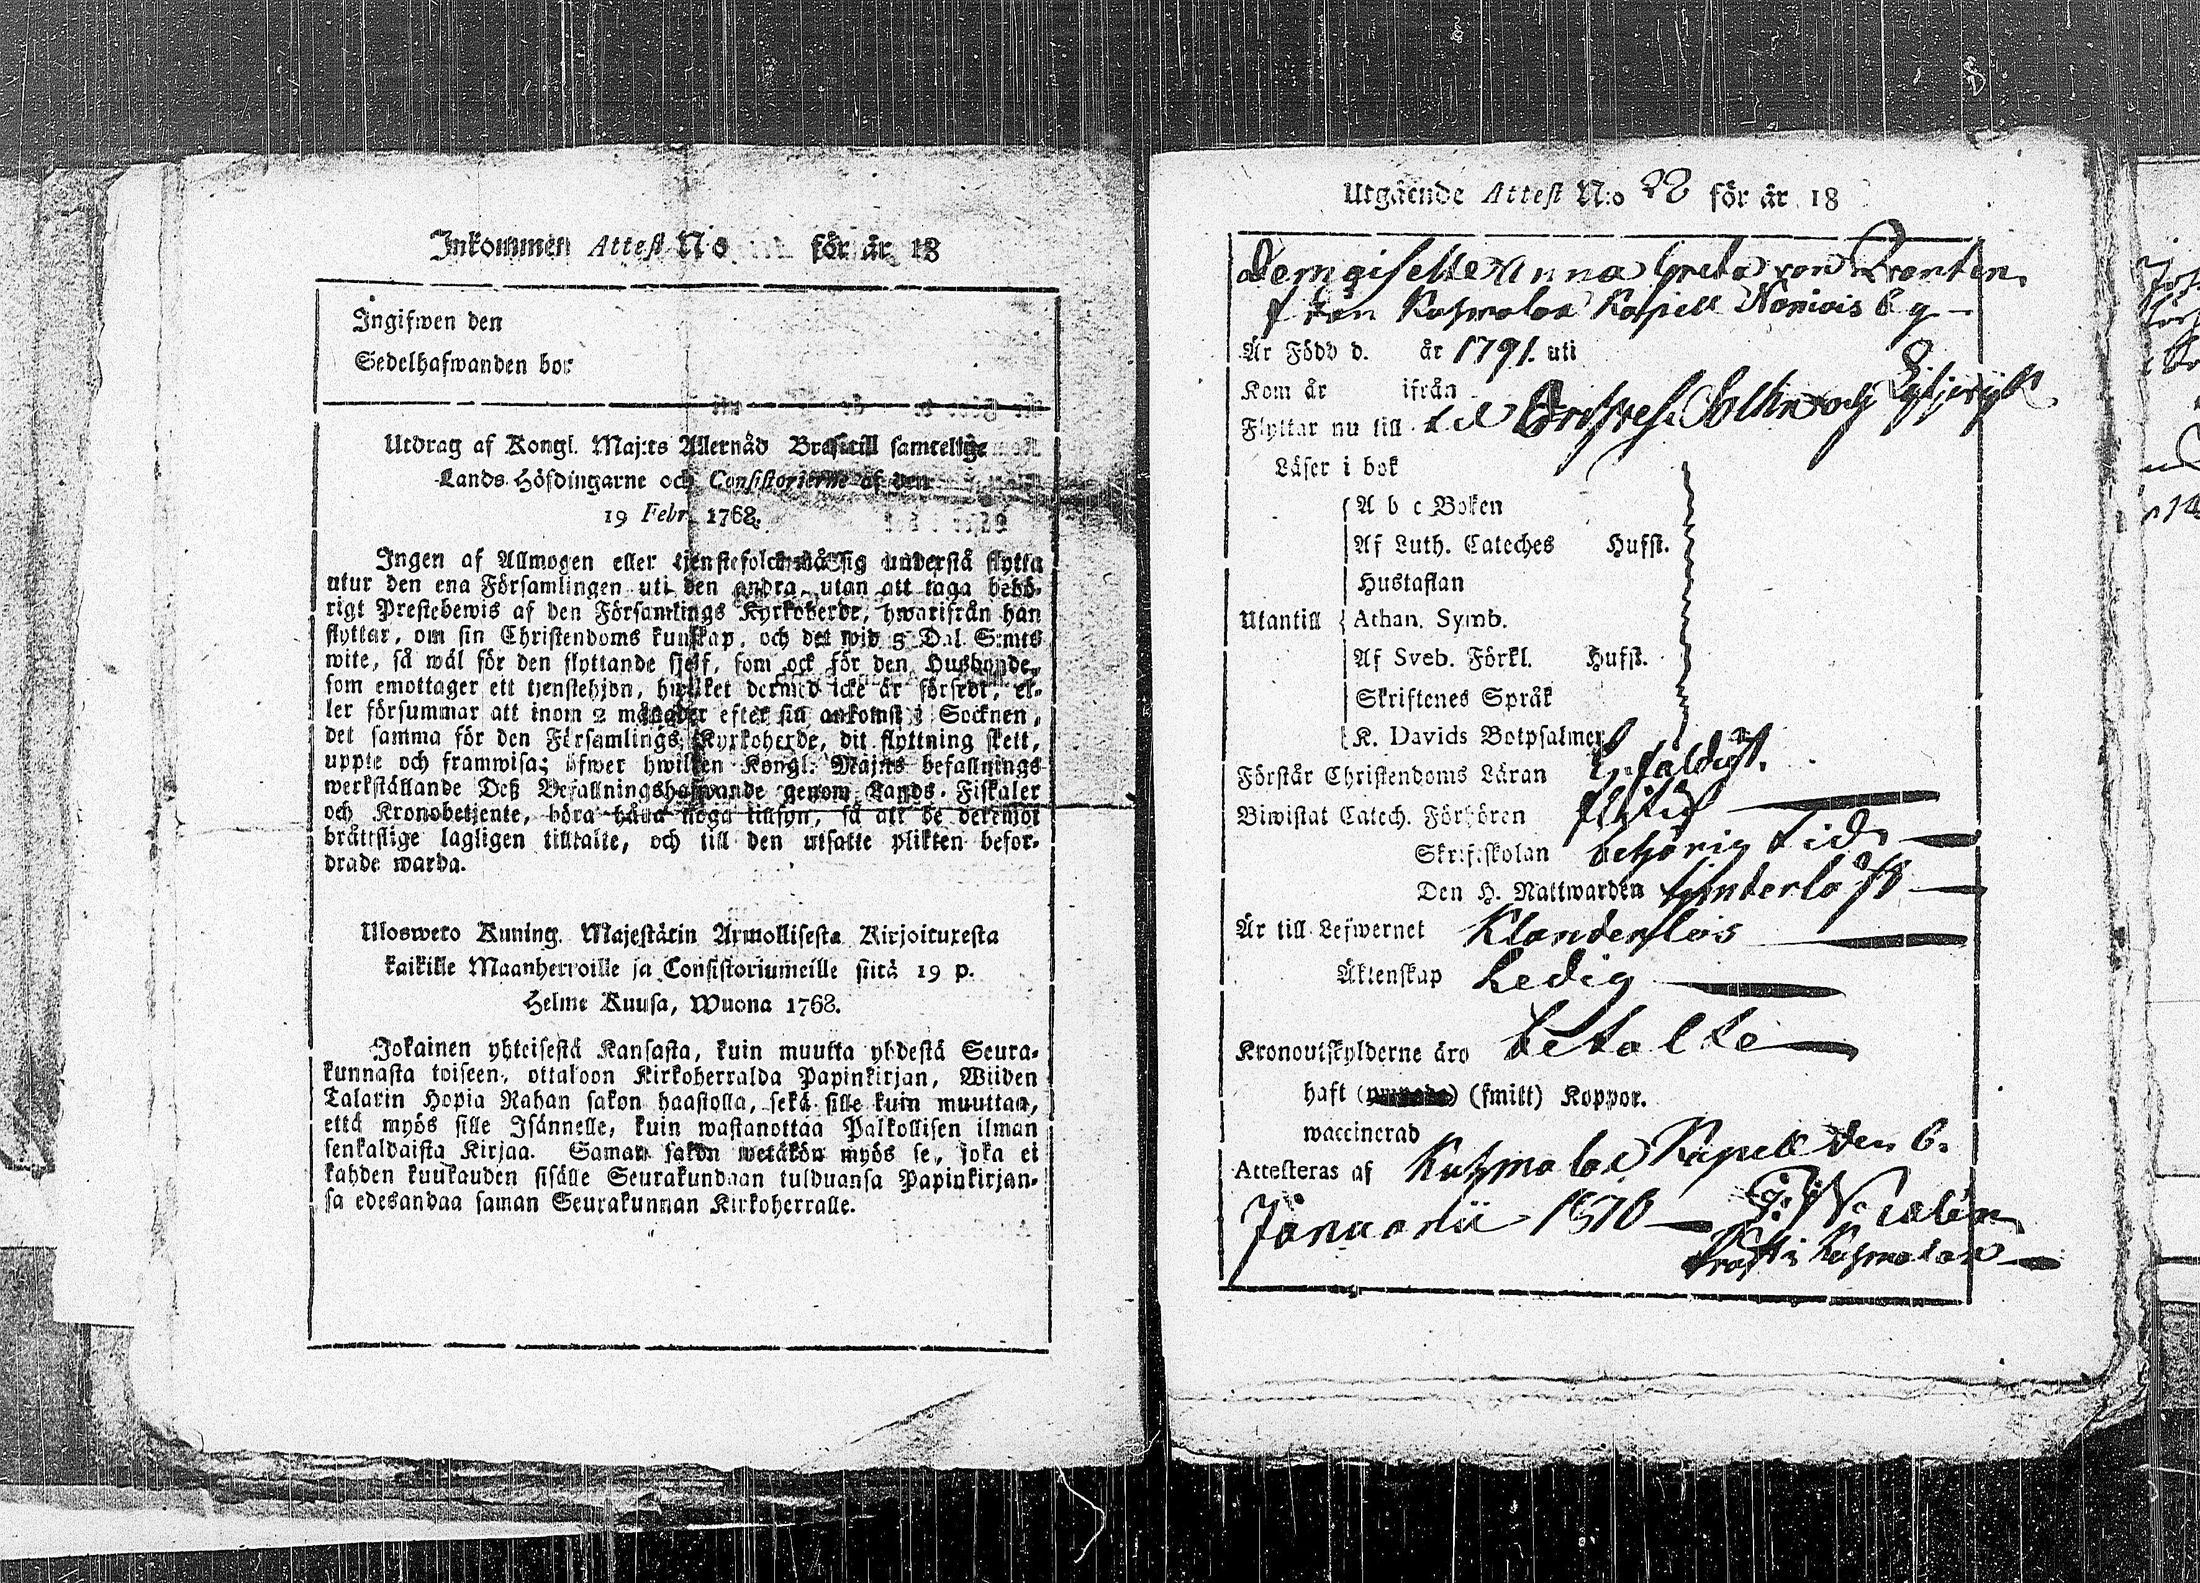 Inkommen Attest No för år 18
Ingifwen den
Sedelhafwanden bor
Utdrag af Kongl. Maj:ts Allernåd Bref till samtelige
Lands Höfdingarne och Consistorierne af den
19 Febr. 1768.
Ingen af Allmogen eller tjenstefolck må sig understå flytta
utur den ena Församlingen uti den andra, utan att taga behö-
rigt Prestebewis af den Församlings Kyrkoherde, hwarifrån han
flyttar, om sin Christendoms kunskap, och det wid 5 Dal. S:mts
wite, så wäl för den flyttande sjelf, som ock för den Husbonde,
som emottager ett tjenstehjon, hwilket dermed icke är försedt, el-
ler försummar att inom 2 månader efter sin ankomst i Socknen,
det samma för den Församlings Kyrkoherde, dit flyttning skett,
uppte och framwisa; öfwer hwilken Kongl. Maj:ts befallnings
werkställande Deß Befallningshafwande genom Lands-Fiskaler
och Kronobetjente, böra hålla noga tillsyn, så att de deremot
bråttslige lagligen tilltalte, och till den utsatte plikten befor-
drade warda.
Ulosweto Kuning. Majestätin Armollisesta Kirjoituxesta
kaikille Maanherroille ja Consistoriumeille siitä 19 p.
Helme Kuusa, Wuona 1768.
Jokainen yhteisestä Kansasta, kuin muutta yhdestä Seura-
kunnasta toiseen, ottakoon Kirkoherralda Papinkirjan, Wiiden
Talarin Hopia Rahan sakon haastolla, sekä sille kuin muuttaa,
että myös sille Isännelle, kuin wastanottaa Palkollisen ilman
senkaldaista Kirjaa. Saman sakon wetäkön myös se, joka ei
kahden kuukauden sisälle Seurakundaan tulduansa Papinkirjan-
sa edesandaa saman Seurakunnan Kirkoherralle.
Utgående Attest N:o 22 för år 18
Demoiselle Anna Greta von Qvanten
från Kuhmalax Kapell by
Är Född d. år 1791. uti
Kom år ifrån
Flyttar nu till
Läser i bok
A b c Boken
Af Luth. Cateches Hufst.
Hustaflan
Utantill Athan. Symb.
Af Sveb. Förkl. Hufst.
Skriftenes Språk
K. Davids Botpsalmer
Förstår Christendoms Läran Enfaldigt.
Biwistat Catech. Förhören flitigt
Skriftskolan behörig tid
Den H. Nattwarden
Är till Lefwernet Klanderslös
Äktenskap Ledig
Kronoutskylderne äro betalte
haft (smitt) Koppor.
waccinerad
Attesteras af Kuhmalax Kapell den 6.
Januarii 1816
Kuhmalax